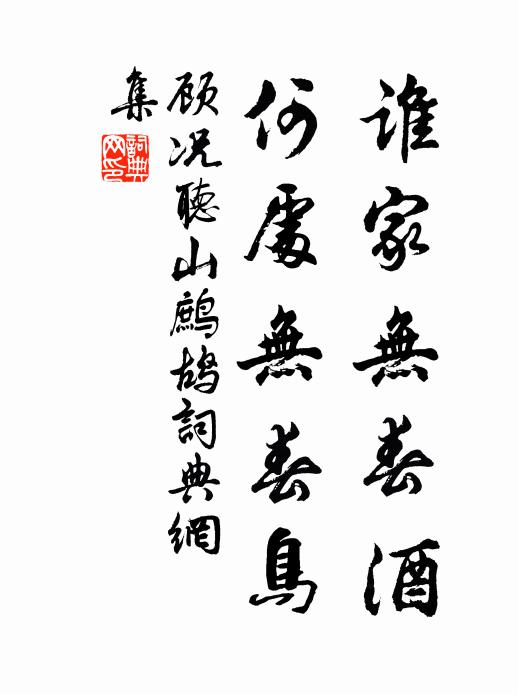 誰家無春酒
何處無春鳥
顾况聽山鷓鴣詞典網
集
詞典網印